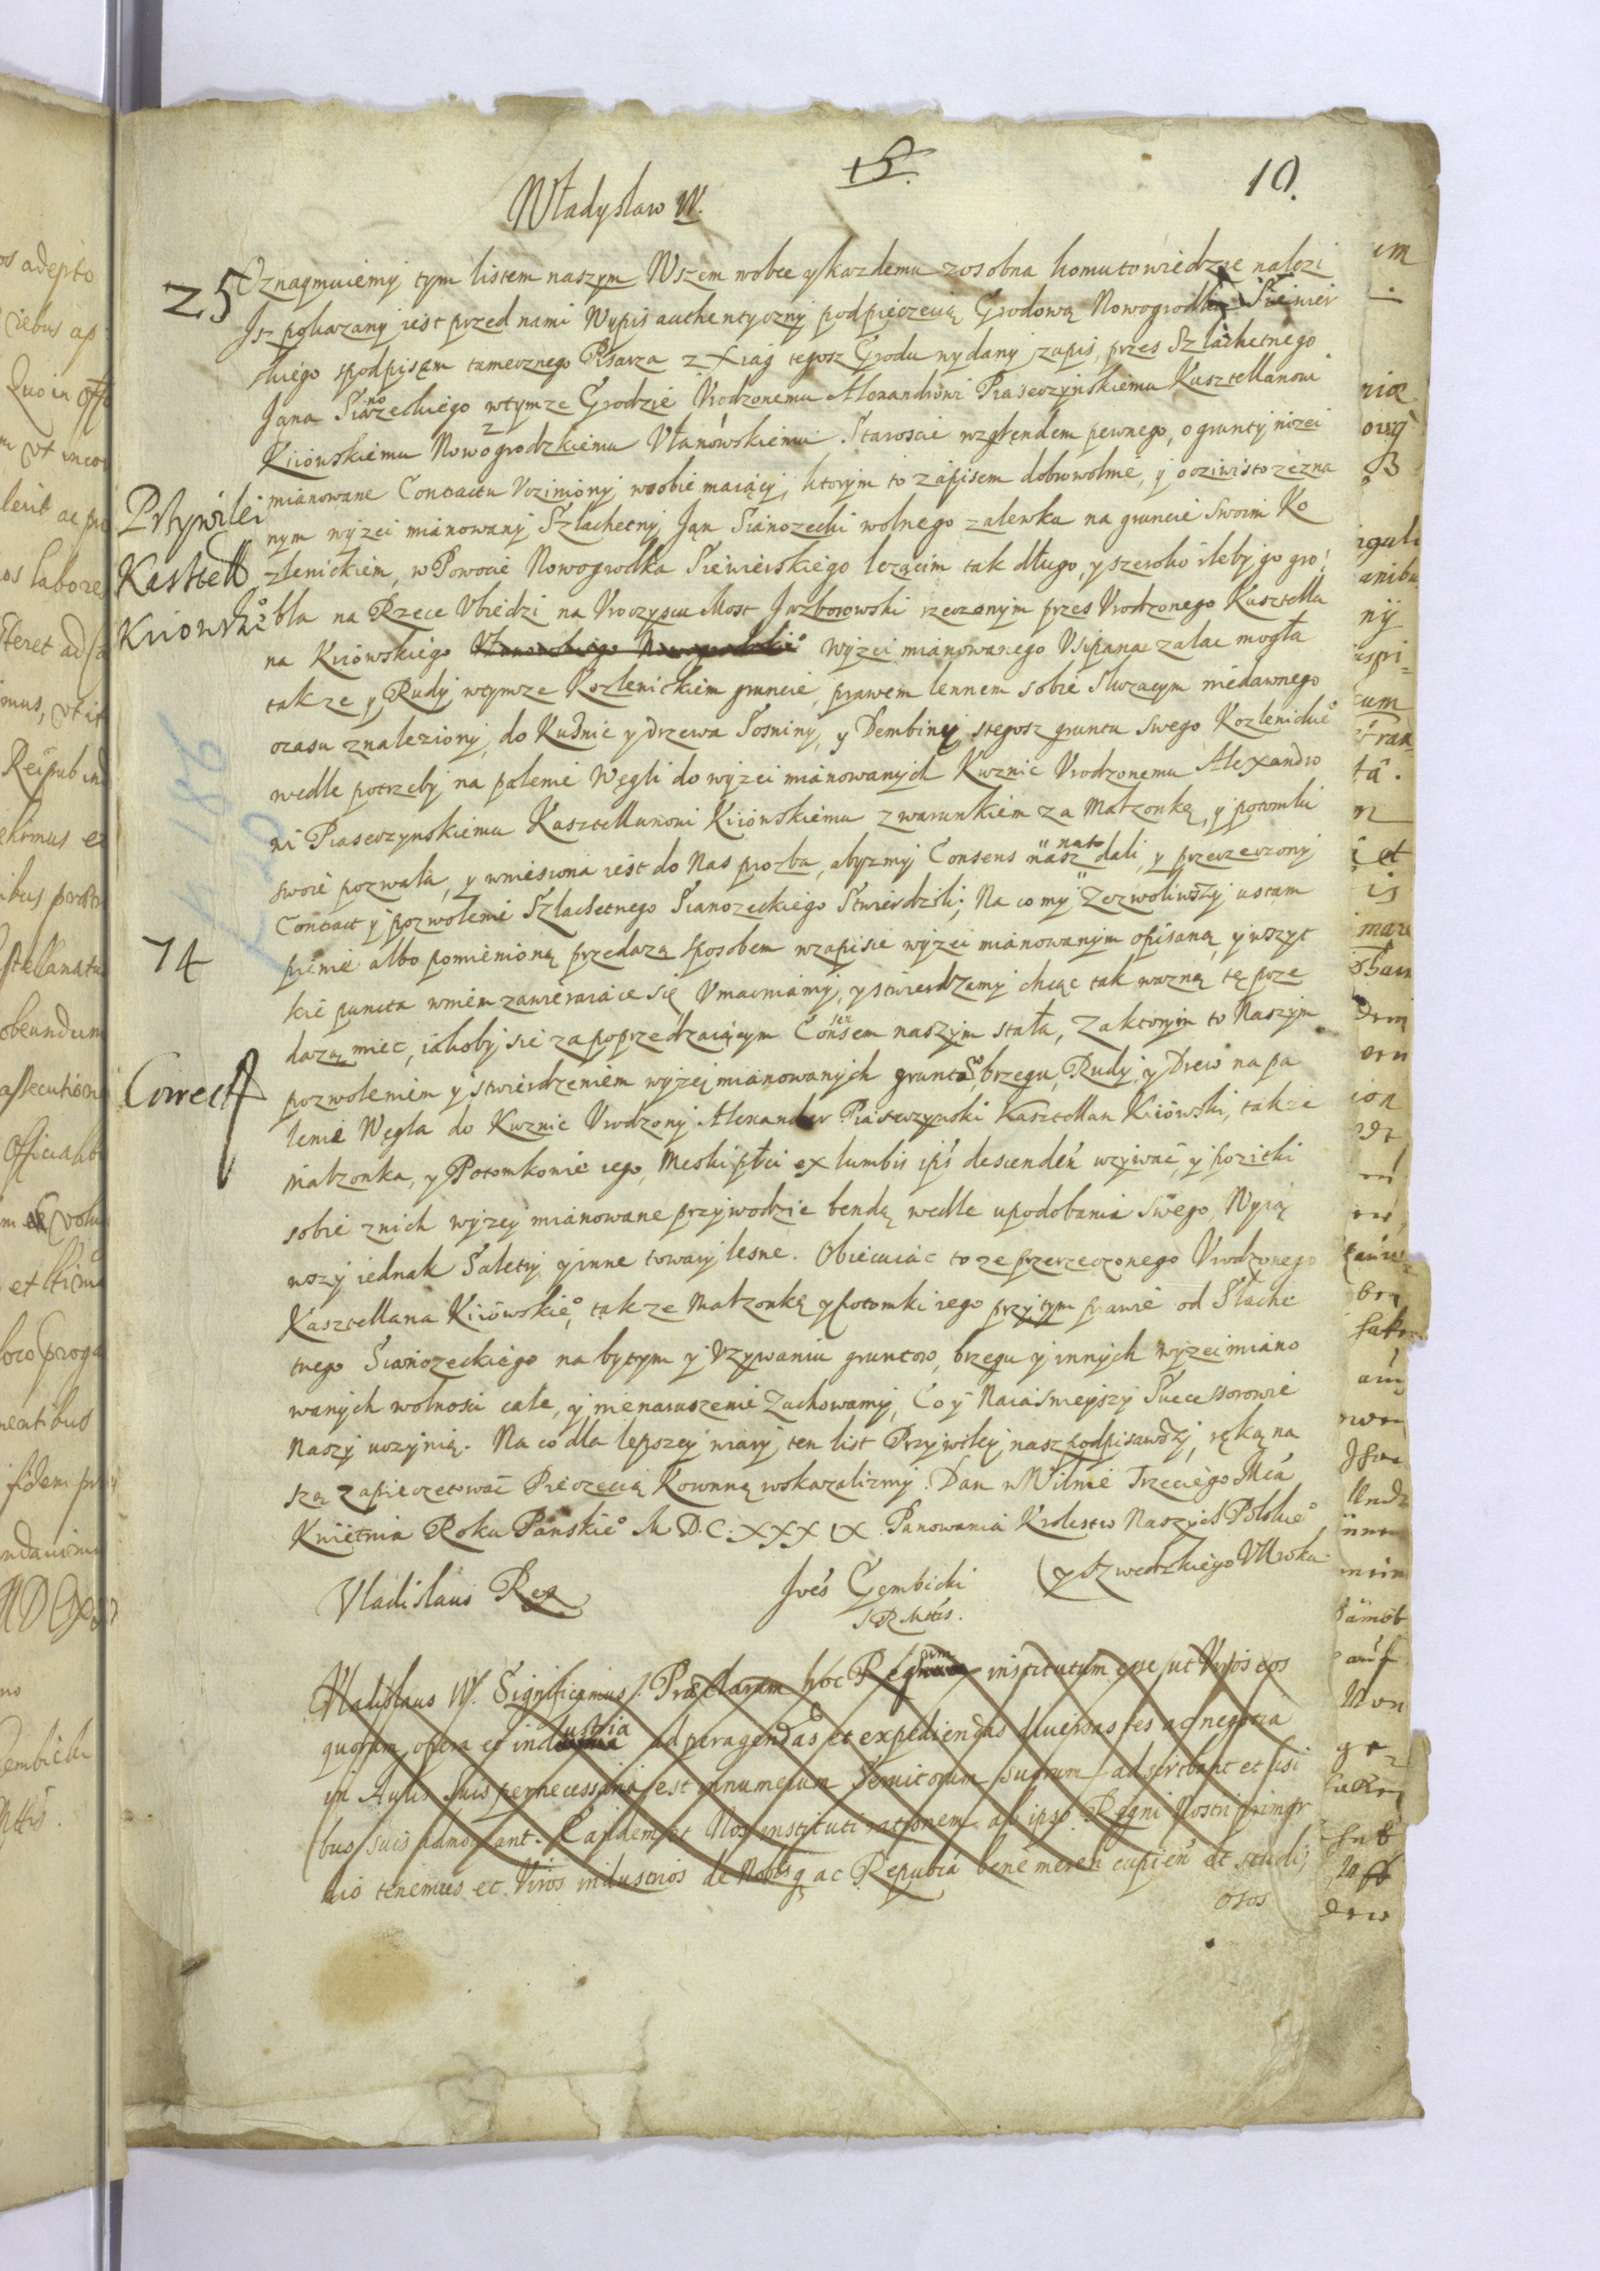 15.
10.
Władysław IV.
25
Oznaymuiemy tym listem naszym Wszem wobec y kazdemu zosobna komu to wiedzieć nalezi
Jz pokazany iest przed nami Wypis authentyczny pod pieczecią Grodową Nowogrodka Siewier
skiego spodpisem tamecznego Pisarza z Xiąg tegosz Grodu wydany zapis, przes Szlachetnego
Jana Sianozeckiego wtymze Grodzie Vrodzonemu Alexandrowi Piaseczynskiemu Kasztellanowi
Kiiowskiemu Nowogrodzkiemu Vlanowskiemu Staroscie wzglendem pewnego, o grunty nizei
mianowane Contractu Vczyniony, wsobie maiący, ktorym to zapisem dobrowolnie, y oczwisto zezna
Prÿwilei
nym wyzei mianowany Szlachetny Jan Sianozecki wolnego zalewku na gruncie swoim Ko
Kasztell
zlenickiem, w Powocie Nowogrodka Siewierskiego lezącim tak długo, y szeroko ileby go gro
Kiiowskiº
bla na Rzece Vbiedzi na Vroczyscu Most Jazborowski rzeczonym przes Vrodzonego Kasztella
na Kiiowskiego wyzei mianowanego Vsipana zalac mogła
takze y Rudy wtymze Kozlenickiem gruncie, prawem lennem sobie sluzacym niedawnego
czasu znaleziony, do Kuznic y drzewa Sosniny, y Dembiny stegosz gruntu swego Kozlenickieº
wedle potrzeby na palenie Węgli do wyzei mianowanych Kuznic Vrodzonemu Alexandro
wi Piaseczynskiemu Kasztellanowi Kiiowskiemu z warunkiem za Małzonkę, y potomki
swoie pozwala, y wniesiona iest do Nas prozba, abyzmy Consens nasz nato dali, y przerzeczony
Contract y pozwolenie Szlachetnego Sianozeckiego Stwierdzili; Na co my Zezwoliwszy ustam
14
pienie albo pomienioną przedazą sposobem wzapisie wyzei mianowanym opisaną, y wszyt
kie puncta wniem zawieraiące się Vmacniamy, y stwierdzamy chcąc tak wazną tę prze
dazą miec, iakoby sie za poprzedzaiącym Consensem naszym stała, Za ktorym to Naszym
Correct
pozwoleniem y stwierdzeniem wyzej mianowanych gruntow, brzegu, Rudy, y Drew na pa
lenie Węgla do Kuznic Vrodzony Alexander Piaseczynski Kasztellan Kiiowski, takze
Małzonka, y Potomkowie iego, Meski płci ex lumbis ipś descendeń uzywać, y pozitki
sobie z nich wyzey mianowane przywodzic bendą wedle upodobania swego, Wyią
wszy iednak Saletry y inne towary lesne. Obiecuiąc to ze przerzeczonego Vrodzonego
Kasztellana Kiiowskieº, takze Małzonkę y potomki iego przy tym prawie od Slache
tnego Sianozeckiego nabytym y Vzywaniu gruntow, brzegu y innych wyzei miano
wanych wolnosci całe, y nienaruszenie Zachowamy, Co y Naiasnieyszy Successorowie
Naszy uczynią. Na co dla lepszey wiary ten list Przywiley nasz podpisawszy, ręką na
szą zapieczetować Pieczecią Koronną wskazalizmy. Dan w Wilnie Trzeciego Mca
Kwietnia Roku Panskieº M.D.C.XXXIX Panowania Krolestw Naszych Polskieº
y Szwedzkiego VII roku
Vladislaus Rex
Jrês Gembicki
SRMtis.
Vladislaus IV. Significamus. Praeclarum hoc Regnum institutum esse, ut Viros eos
quorum opera et industria ad peragendas et expediendas diversas res ac negotia
in Aulis suis pernecessaria est in numerum Servitorum suorum adscribant et usi
bus suis admoveant. Eandem et Nos instituti rationem ab ipso Regni Nostri primor
dio tenemus et Viros industrios de Nobis q ac Repubca bene meren cupien et studij
osos